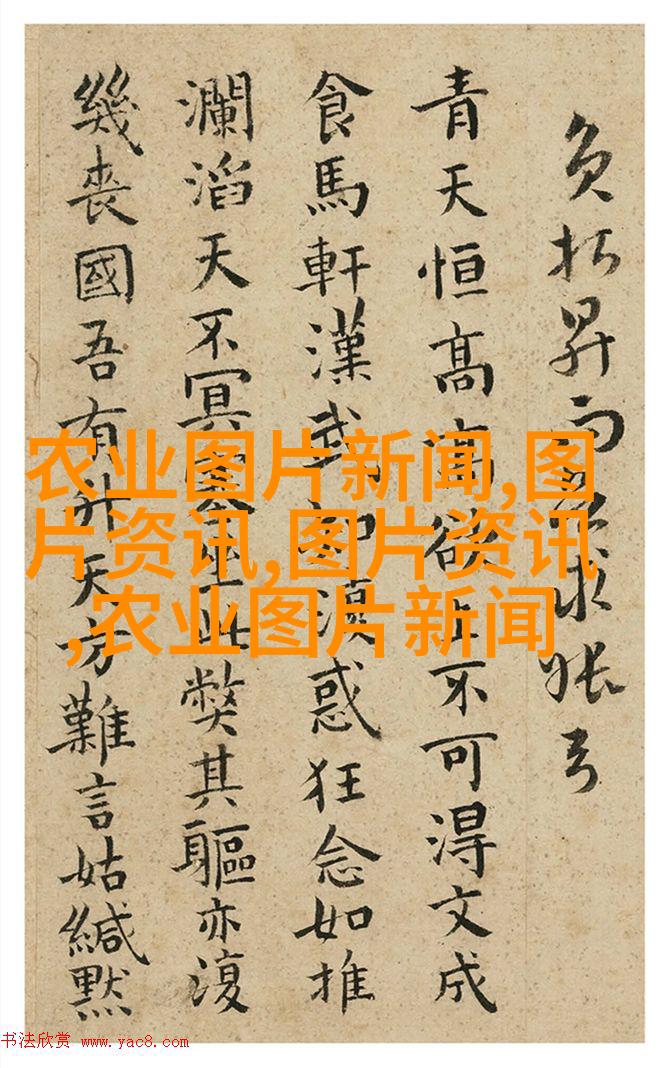 昇而求
青天恒髙髙欲上不可得文成
食馬軒漢武却復惑狂念如推
瀾滔天不冥塞坐此弊其軀亦復
幾喪國吾有升天方難言姑緘默
农业图片新闻,图
片资讯,图片资讯
,农业图片新闻
书法欣赏 www.yac8.com